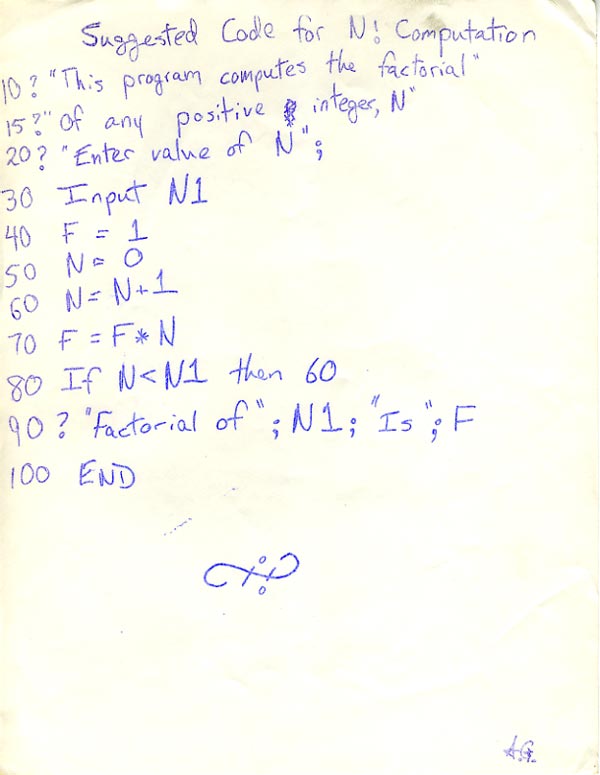 Suggested Code for N! Computation
10 ? "This program computes the factorial"
15 ?" Of any positive integer, N"
20 ? "Enter value of N";
30 Input N1
40 F = 1
50 N = 0
60 N = N+1
70 F = F * N
80 If N<N1 then 60
90 ? "Factorial of"; N1; "Is"; F
100 END
A.G.